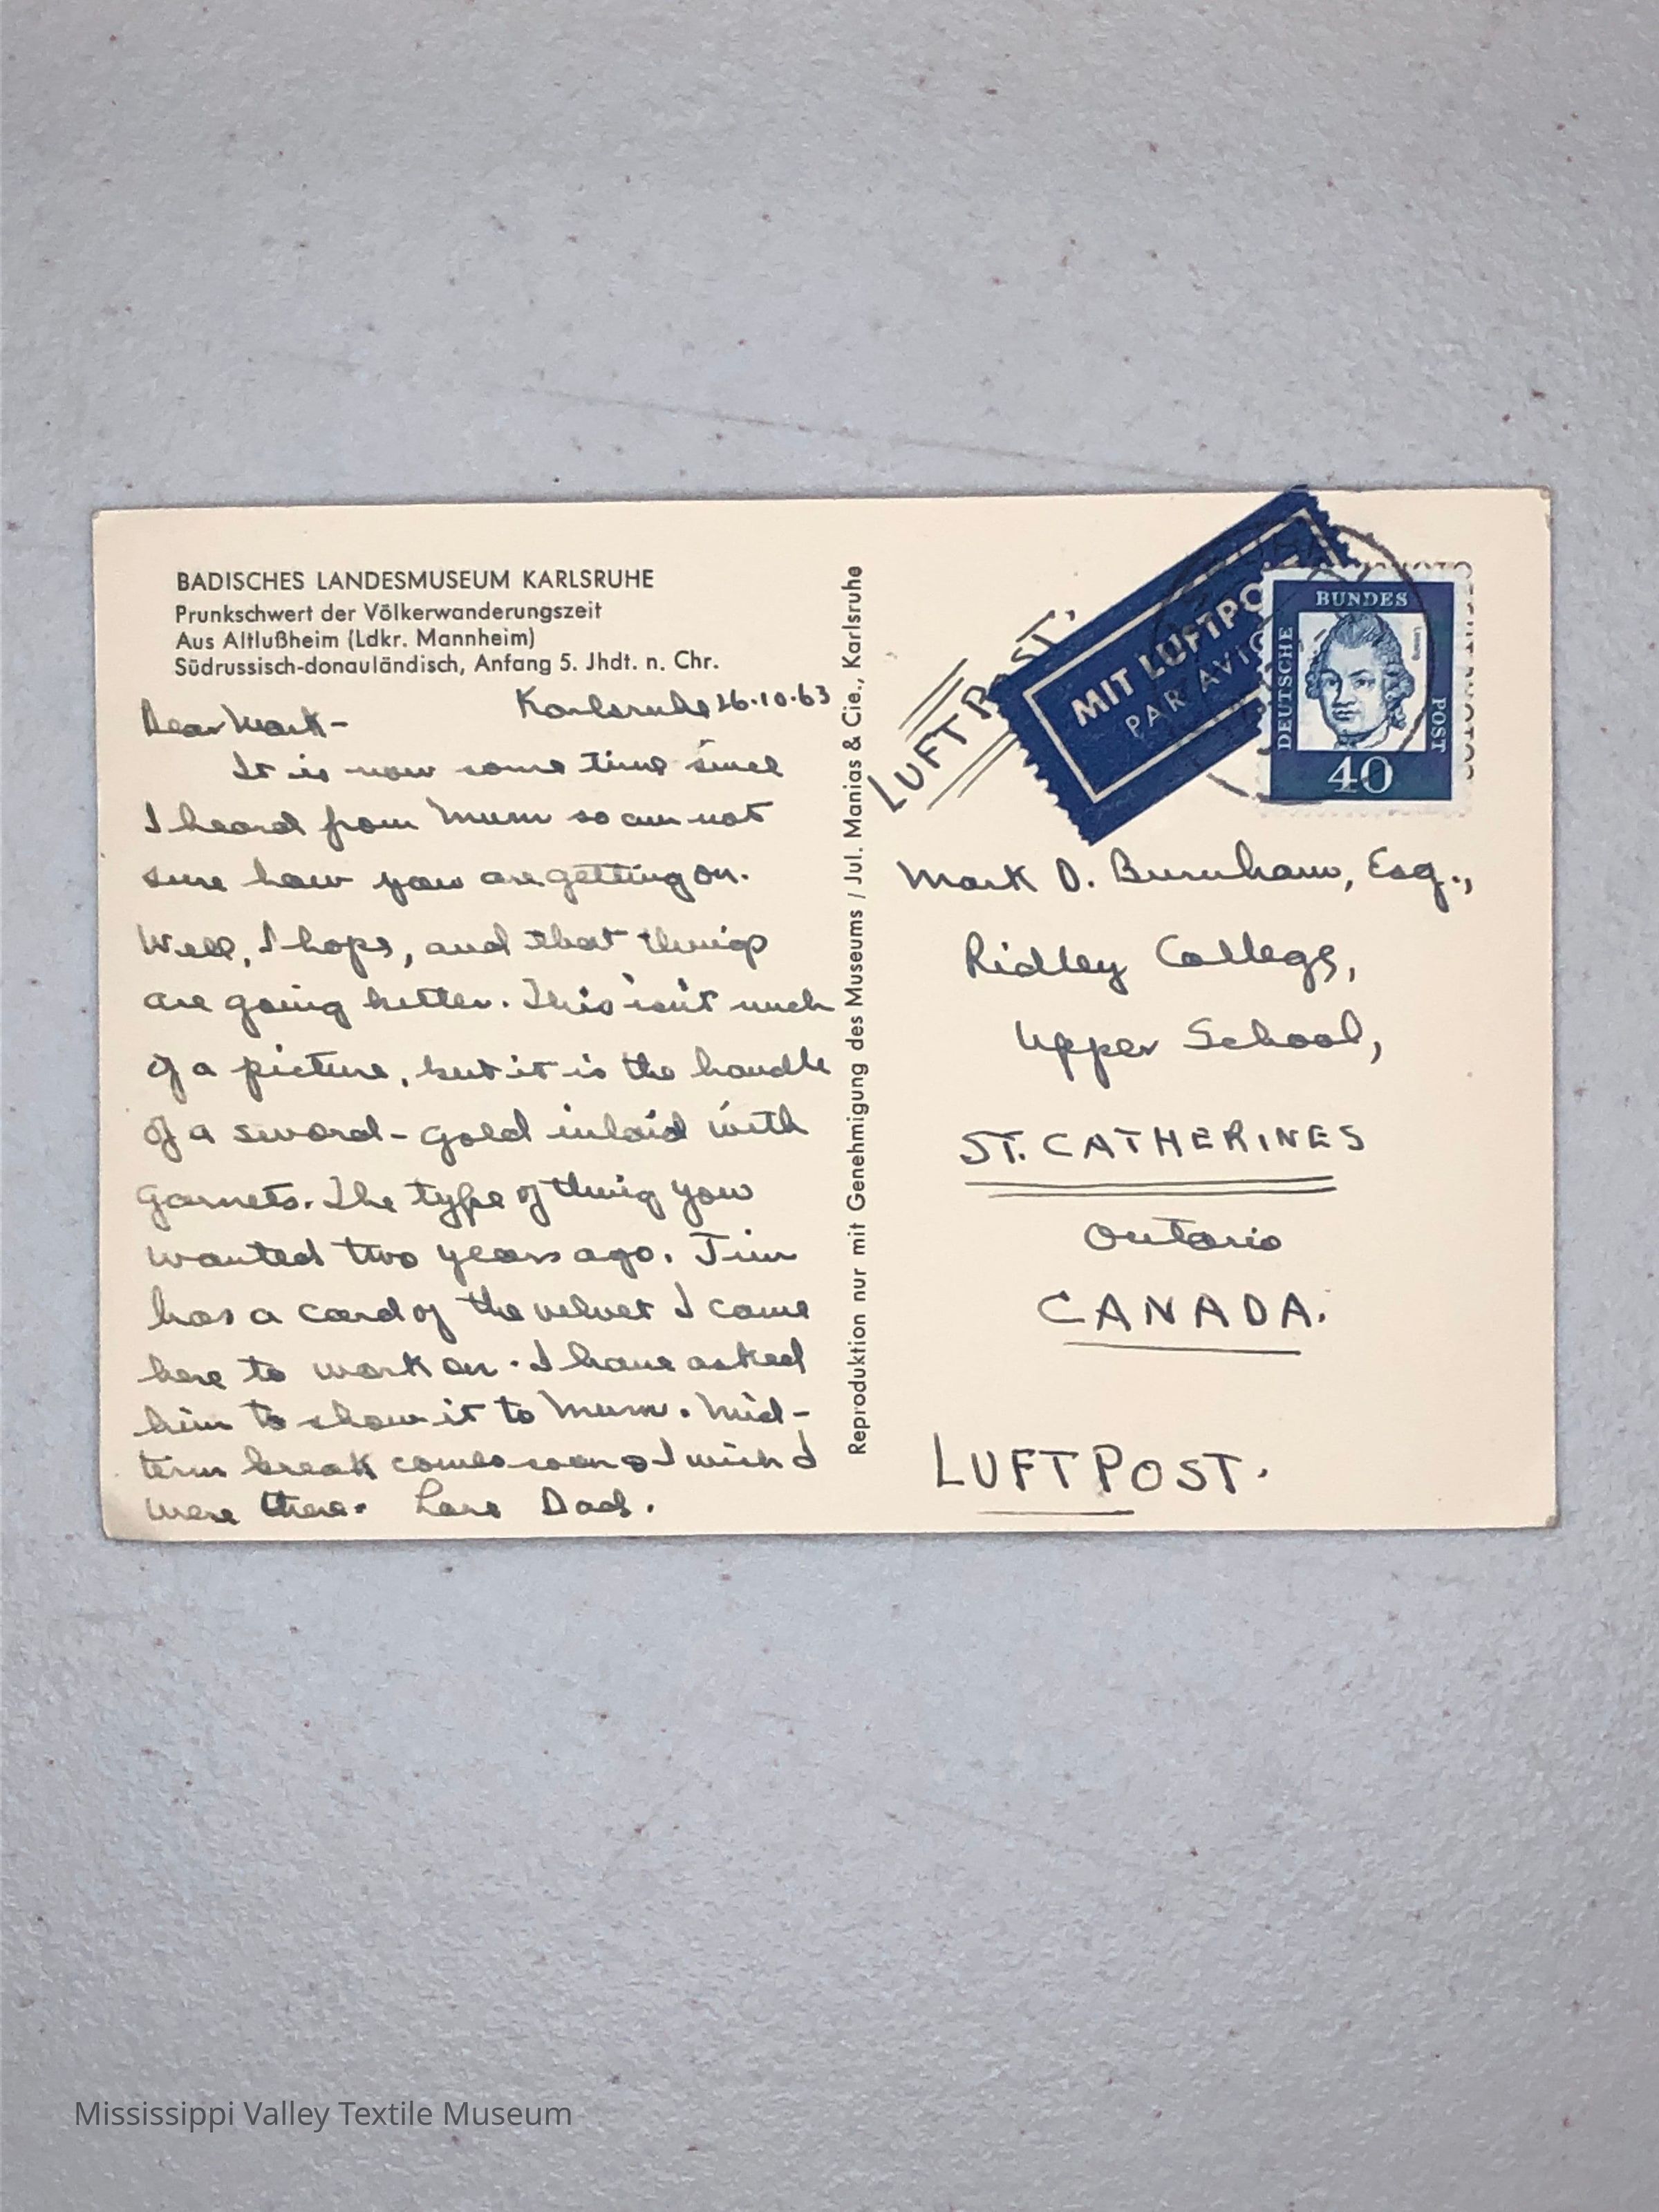 BADISCHES LANDESMUSEUM KARLSRUHE
Prunkschwert der Völkerwanderungszeit
Aus Altlußheim (Ldkr. Mannheim)
Südrussisch-donauländisch, Anfang 5. Jhdt. n. Chr.
Karlsruhe 26.10.63
Dear Mark-
It is now some time since
I heard from Mum so am not
sure how you are getting on.
Well, I hope, and that things
are going better. This isn't much
of a picture, but it is the handle
of a sword - gold inlaid with
garnets. The type of thing you
wanted two years ago. Jim
has a card of the velvet I came
here to work on. I have asked
him to show it to Mum. Mid-
term break comes soon & I wish I
were there. Love Dad.
Reproduktion nur mit Genehmigung des Museums / Jul. Manias & Cie., Karlsruhe
LUFTPOST.
MIT LUFTPO
PAR AVIO
DEUTSCHE
BUNDES
POST
Lessing
40
Mark D. Burnham, Esq.,
Ridley College,
Upper School,
ST. CATHERINES
Ontario
CANADA.
LUFTPOST.
Mississippi Valley Textile Museum